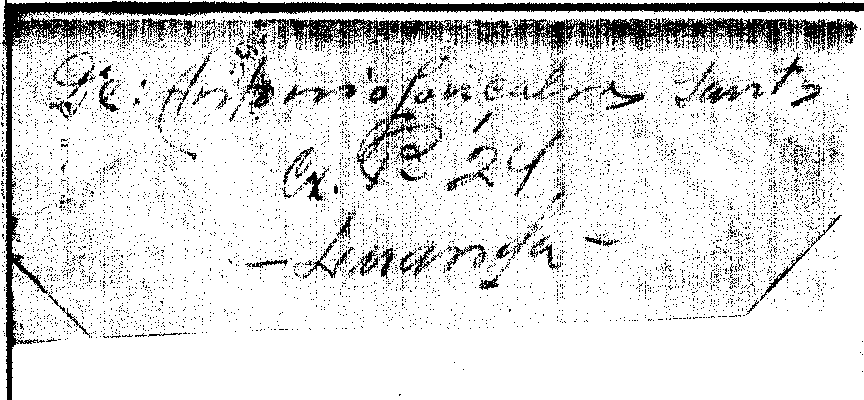 De: Antonio Gonçalves Santos
Cx. Pe 24
- Luanda -